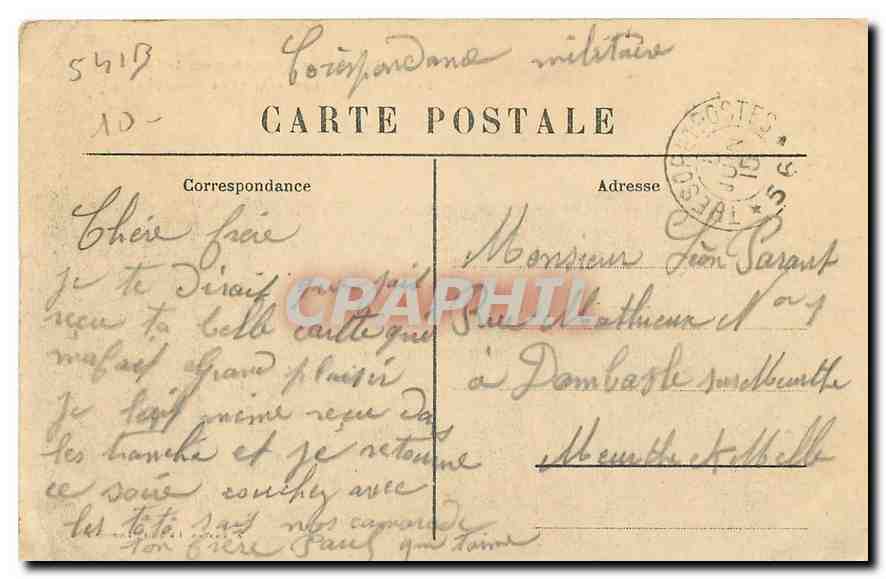 541B
Corespondance militaire
10-
CARTE POSTALE
TRESOR ET POSTES
JUIN
15
* 56 *
Correspondance
Adresse
Chére frére
je te Dirait que jait
reçu ta belle cartte qui
mafait Grand plaisir
je lait même reçu dans
les tranché et je retourne
ce soire couchez avec
les toto sait nos camarade
ton frère Paul qui t'aime
Monsieur Léon Parant
Rue Mathieux N° 1
à Dombasle sur Meurthe
Meurthe et Mlle
CPAPHIL